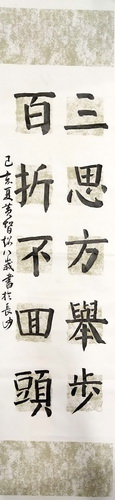 三思方舉步
百折不回頭
己亥夏黄智韬八歲書於長沙